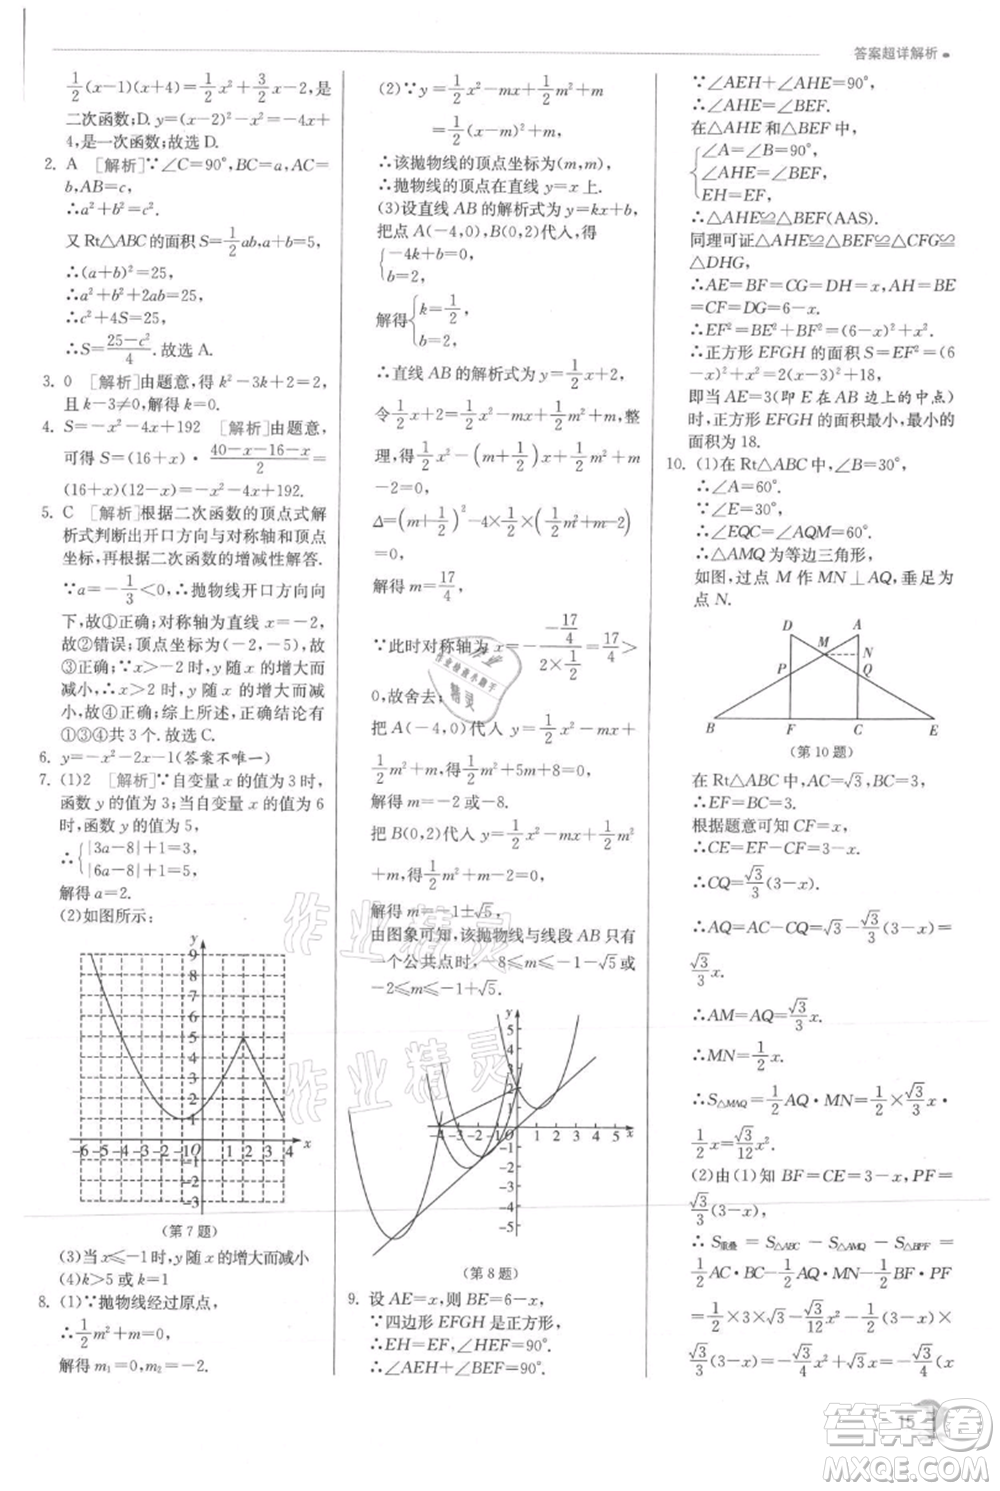 答案超详解析
1/2(x-1)(x+4)=1/2x²+3/2x-2,是
二次函数;D. y=(x-2)²-x²=-4x+
4,是一次函数;故选 D.
2. A [解析]∵∠C=90°,BC=a,AC=
b,AB=c,
∴a²+b²=c².
又 Rt△ABC 的面积 S=1/2ab,a+b=5,
∴(a+b)²=25,
∴a²+b²+2ab=25,
∴c²+4S=25,
∴S=(25-c²)/4.故选 A.
3. 0 [解析]由题意,得 k²-3k+2=2,
且 k-3≠0,解得 k=0.
4. S=-x²-4x+192 [解析]由题意,
可得 S=(16+x)·(40-x-16-x)/2=
(16+x)(12-x)=-x²-4x+192.
5. C [解析]根据二次函数的顶点式解
析式判断出开口方向与对称轴和顶点
坐标,再根据二次函数的增减性解答.
∵a=-1/3<0,∴抛物线开口方向向
下,故①正确;对称轴为直线 x=-2,
故②错误;顶点坐标为(-2,-5),故
③正确;∵x>-2 时,y 随 x 的增大而
减小,∴x>-1 时,y 随 x 的增大而
减小,故④正确;综上所述,正确的有
①③④共 3 个.故选 C.
6. y=-x²-2x-1(答案不唯一)
7. (1)2 [解析]∵自变量 x 的值为 3 时,
函数 y 的值为 3;当自变量 x 的值为 6
时,函数 y 的值为 5,
∴{|3a-8|+1=3,
|6a-8|+1=5,
解得 a=2.
(2)如图所示:
y
9
8
7
6
5
4
3
2
1
-6-5-4-3-2-1O 1 2 3 4 x
-1
-2
-3
(第 7 题)
(3)当 x≤-1 时,y 随 x 的增大而减小
(4)k>5 或 k=1
8. (1)∵抛物线经过原点,
∴1/2m²+m=0,
解得 m₁=0,m₂=-2.
(2)∵y=1/2x²-mx+1/2m²+m
=1/2(x-m)²+m,
∴该抛物线的顶点坐标为(m,m),
∴抛物线的顶点在直线 y=x 上.
(3)设直线 AB 的解析式为 y=kx+b,
把点 A(-4,0),B(0,2)代入,得
{-4k+b=0,
b=2,
解得{k=1/2,
b=2,
∴直线 AB 的解析式为 y=1/2x+2.
令1/2x+2=1/2x²-mx+1/2m²+m,整
理,得1/2x²-(m+1/2)x+1/2m²+m-2
=0,
Δ=(m+1/2)²-4×1/2×(1/2m²+m-2)=0,
解得 m=-17/4,
∵此时对称轴为 x=-(-17/4)/(2×1/2)=17/4>
0,故舍去;
把 A(-4,0)代入 y=1/2x²-mx+1/2m²
+m,得1/2m²+5m+8=0,
解得 m=-2 或-8.
把 B(0,2)代入 y=1/2x²-mx+1/2m²
+m,得1/2m²+m=2,
解得 m=-1±√5.
由图象可知,该抛物线与线段 AB 只有
一个公共点时,-8≤m<-1-√5或
-2≤m≤-1+√5.
y
5
4
3
2
1
-4-3-2-1O 1 2 3 4 5 x
-1
-2
-3
-4
-5
(第 8 题)
9. 设 AE=x,则 BE=6-x,
∵四边形 EFGH 是正方形,
∴EH=EF,∠HEF=90°,
∴∠AEH+∠BEF=90°.
∵∠AEH+∠AHE=90°,
∴∠AHE=∠BEF.
在△AHE 和△BEF 中,
{∠A=∠B=90°,
∠AHE=∠BEF,
EH=EF,
∴△AHE≌△BEF(AAS).
同理可证△AHE≌△BEF≌△CFG≌
△DHG,
∴AE=BF=CG=DH=x,AH=BE
=CF=DG=6-x,
∴EF²=BE²+BF²=(6-x)²+x²,
∴正方形 EFGH 的面积 S=EF²=(6
-x)²+x²=2(x-3)²+18,
即当 AE=3(即 E 在 AB 边上的中点)
时,正方形 EFGH 的面积最小,最小的
面积为 18.
10. (1)在 Rt△ABC 中,∠B=30°,
∴∠A=60°.
∵∠E=30°,
∴∠EQC=∠AQM=60°,
∴△AMQ 为等边三角形,
如图,过点 M 作 MN⊥AQ,垂足为
点 N.
D A
M N
P Q
B F C E
(第 10 题)
在 Rt△ABC 中,AC=√3,BC=3,
∴EF=BC=3.
根据题意可知 CF=x,
∴CE=EF-CF=3-x,
∴CQ=√3/3(3-x),
∴AQ=AC-CQ=√3-√3/3(3-x)=
√3/3x,
∴AM=AQ=√3/3x.
∴MN=1/2x.
∴S△MAQ=1/2AQ·MN=1/2×√3/3x·
1/2x=√3/12x².
(2)由(1)知 BF=CE=3-x,PF=
√3/3(3-x),
∴S重叠=S△ABC-S△AMQ-S△BPF=
1/2AC·BC-1/2AQ·MN-1/2BF·PF
=1/2×3×√3-√3/12x²-1/2(3-x)×
√3/3(3-x)=-√3/4x²+√3x=-√3/4(x
15
作业精灵
作业检查小助手
作业精灵
作业精灵
答案圈
MXQE.COM